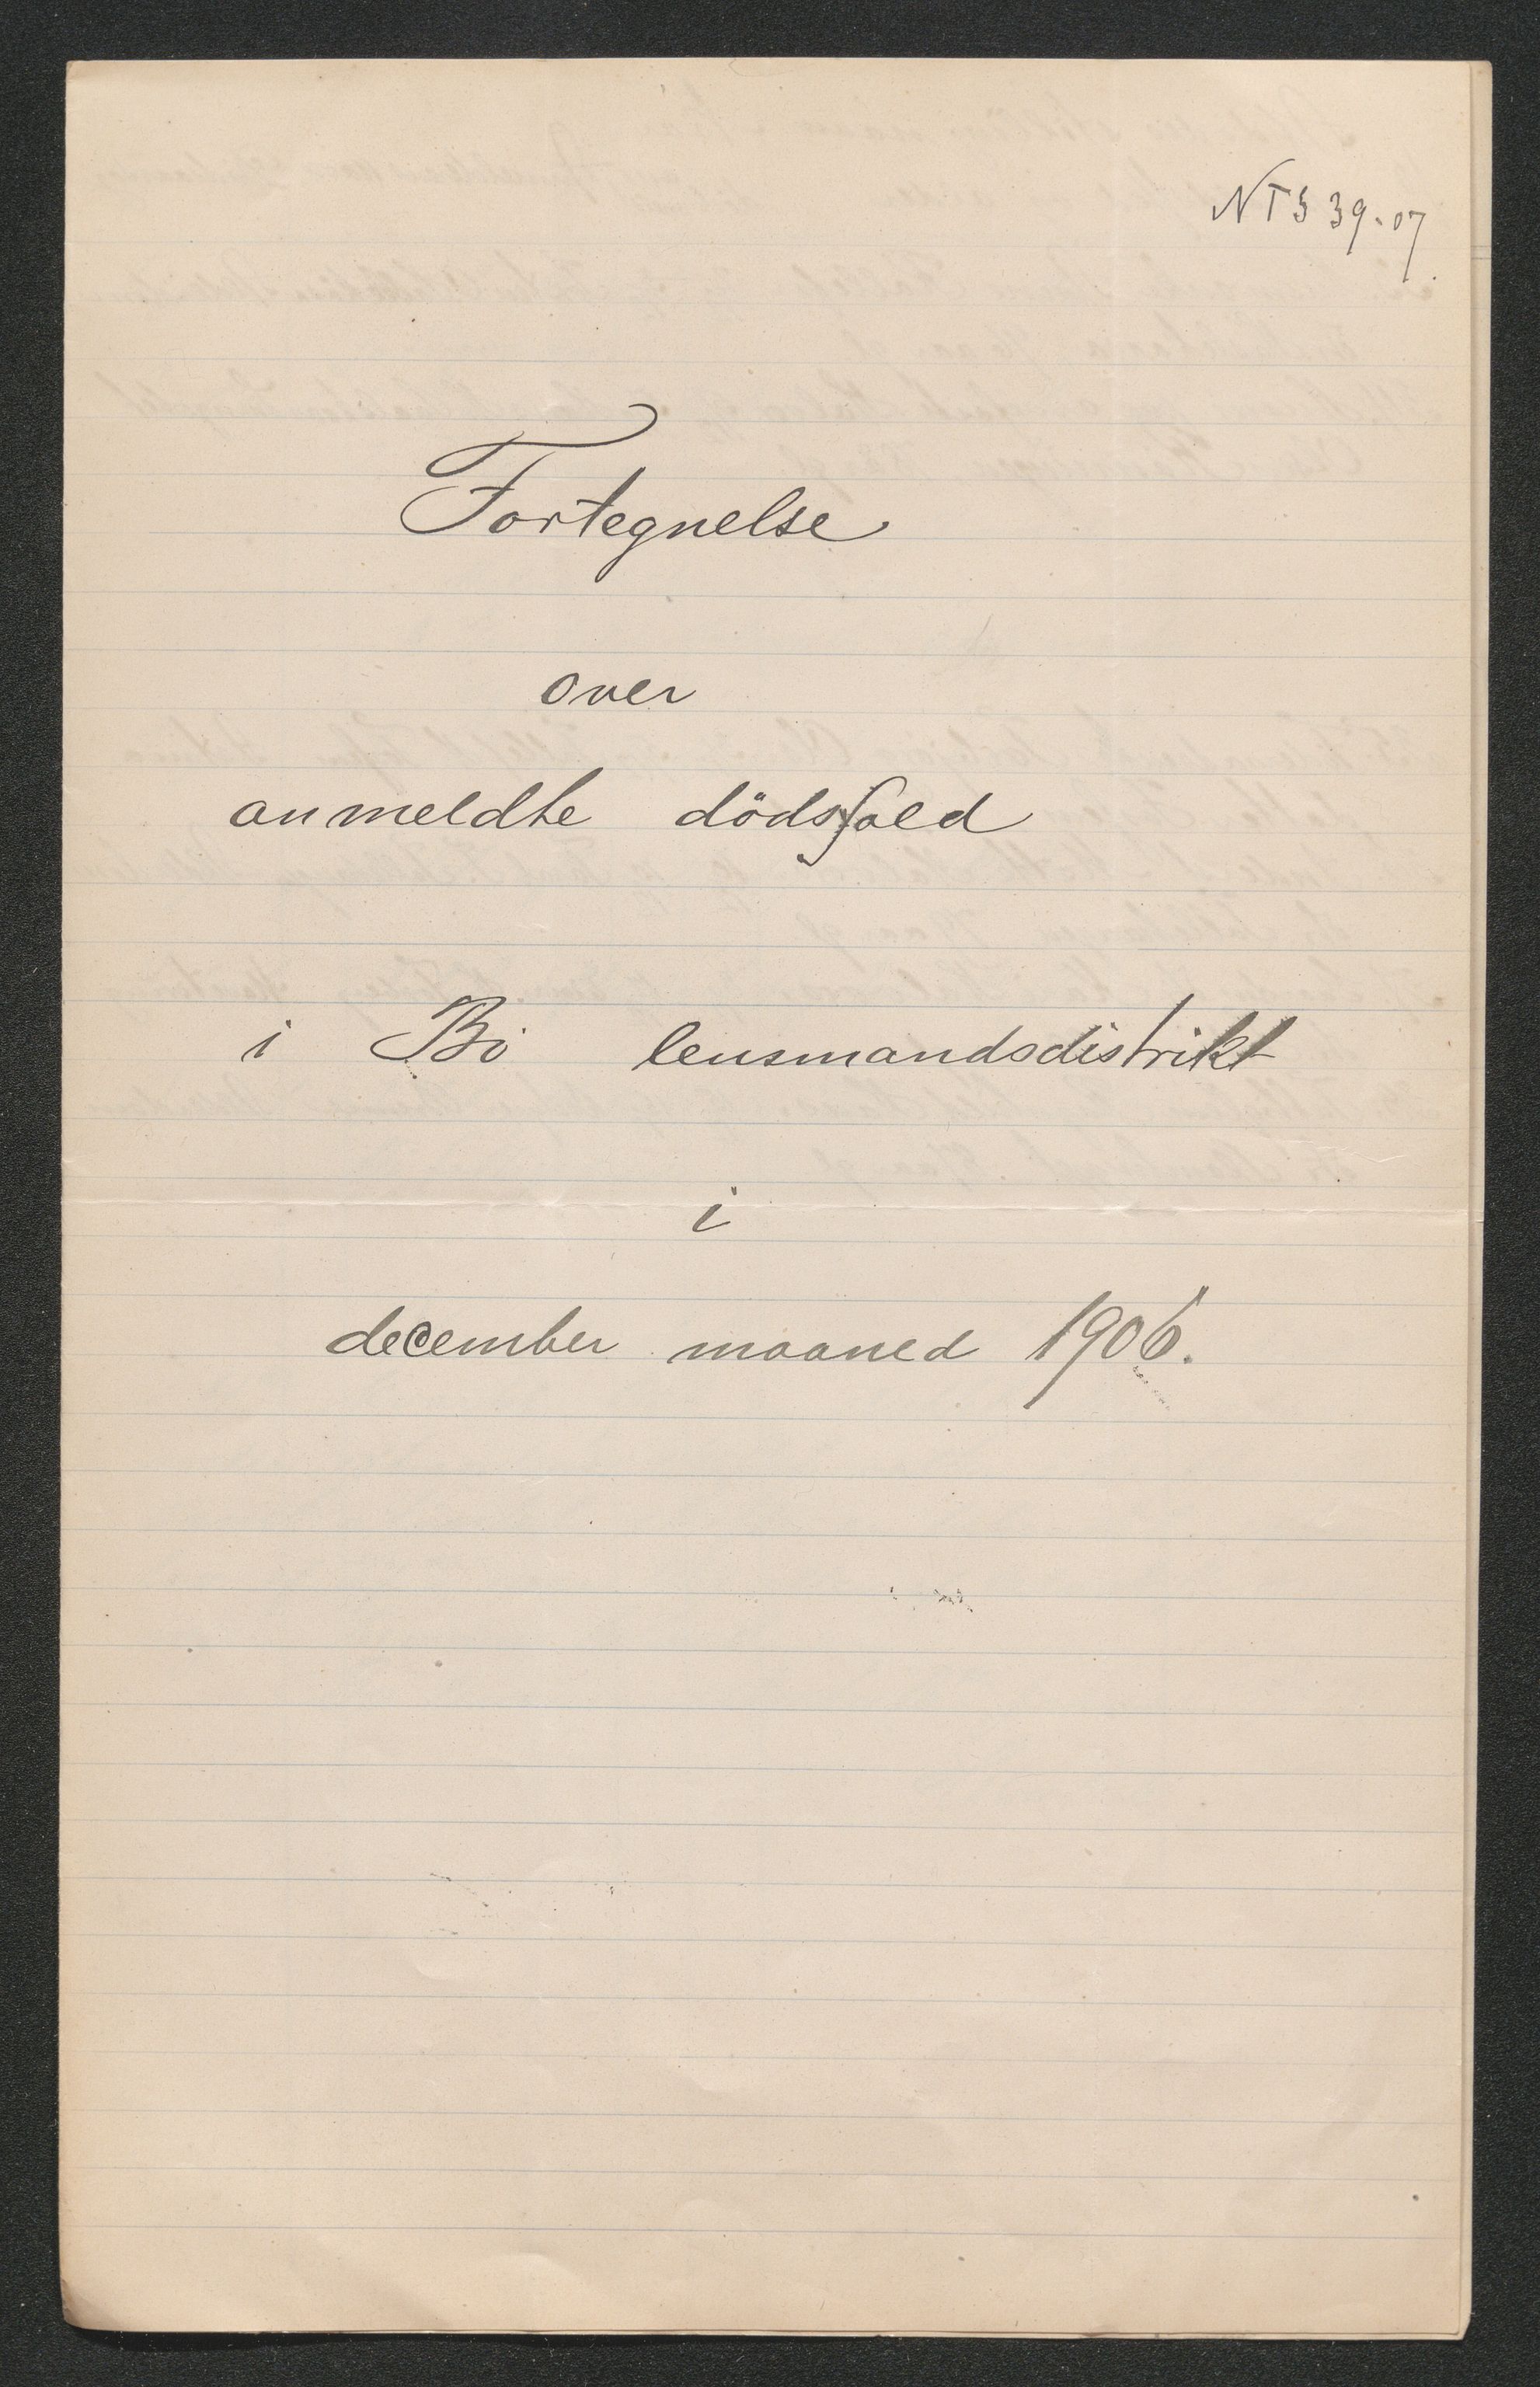 NTS 39-07.
Fortegnelse
over
anmeldte dödsfald
i Bö lensmandsdistrikt
i
december maaned 1906.